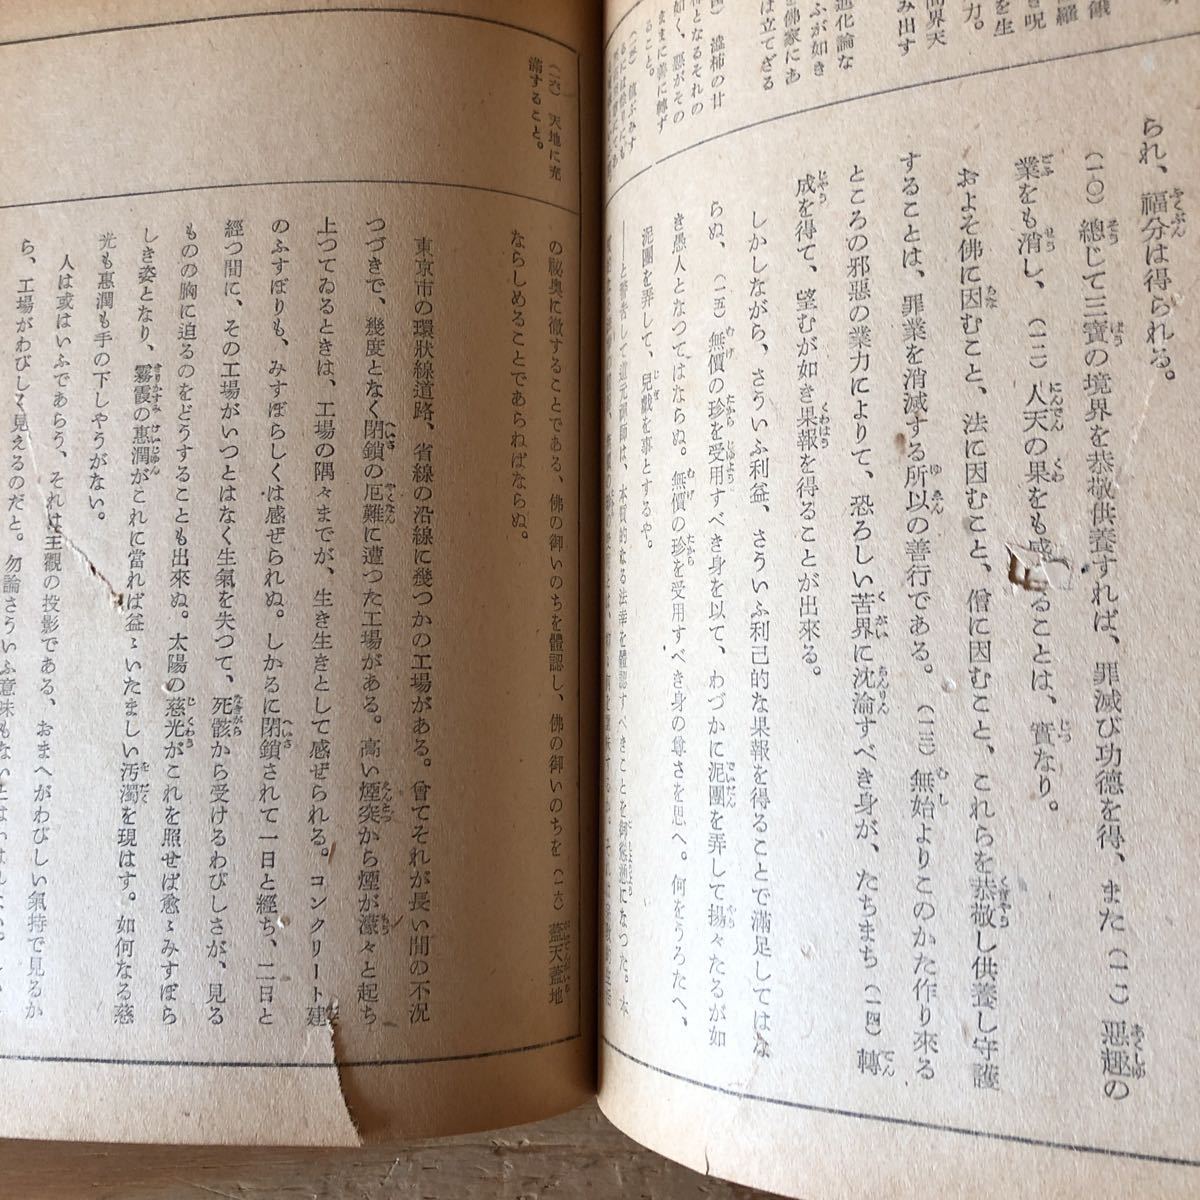 られ、福分は得られる。
(一〇)總じて三寶の境界を恭敬供養すれば、罪滅び功德を得、また(一一)惡趣の
業をも消し、(一二)人天の果をも感ることは、實なり。
およそ佛に因むこと、法に因むこと、僧に因むこと、これらを恭敬し供養し守護
することは、罪業を消滅する所以の善行である。(一三)無始よりこのかた作り來る
ところの邪惡の業力によりて、恐ろしい苦界に沈淪すべき身が、たちまち(一四)轉
成を得て、望むが如き果報を得ることが出來る。
しかしながら、さういふ利益、さういふ利己的な果報を得ることで滿足してはな
らぬ、(一五)無價の珍を受用すべき身を以て、わづかに泥團を弄して揚々たるが如
き愚人となつてはならぬ。無價の珍を受用すべき身の尊さを思へ。何をうろたへ、
泥團を弄して、兒戲を事とするや。
——と警告して道元禪師は、本質的なる法幸を體認すべきことを御慫慂になつた。本
(四) 澁柿の甘
となるそれの
如く、惡がその
ままに善に轉ず
ること。
(一六) 天地に充
滿すること。
の祕奧に徹することである、佛の御いのちを體認し、佛の御いのちを(一六)蓋天蓋地
ならしめることであらねばならぬ。
東京市の環狀線道路、省線の沿線に幾つかの工場がある。曾てそれが長い間の不況
つづきで、幾度となく閉鎖の厄難に遭つた工場がある。高い煙突から煙が濛々と起ち
上つてゐるときは、工場の隅々までが、生き生きとして感ぜられる。コンクリート建
のふすぼりも、みすぼらしくは感ぜられぬ。しかるに閉鎖されて一日と經ち、二日と
經つ間に、その工場がいつとはなく生氣を失つて、死骸から受けるわびしさが、見る
ものの胸に迫るのをどうすることも出來ぬ。太陽の慈光がこれを照せば愈〻みすぼら
しき姿となり、霧霞の惠潤がこれに當れば益〻いたましい汚濁を現はす。如何なる慈
光も惠潤も手の下しやうがない。
人は或はいふであらう、それは主觀の投影である、おまへがわびしい氣持で見るか
ら、工場がわびしく見えるのだと。勿論さういふ意味もないとはいはれ